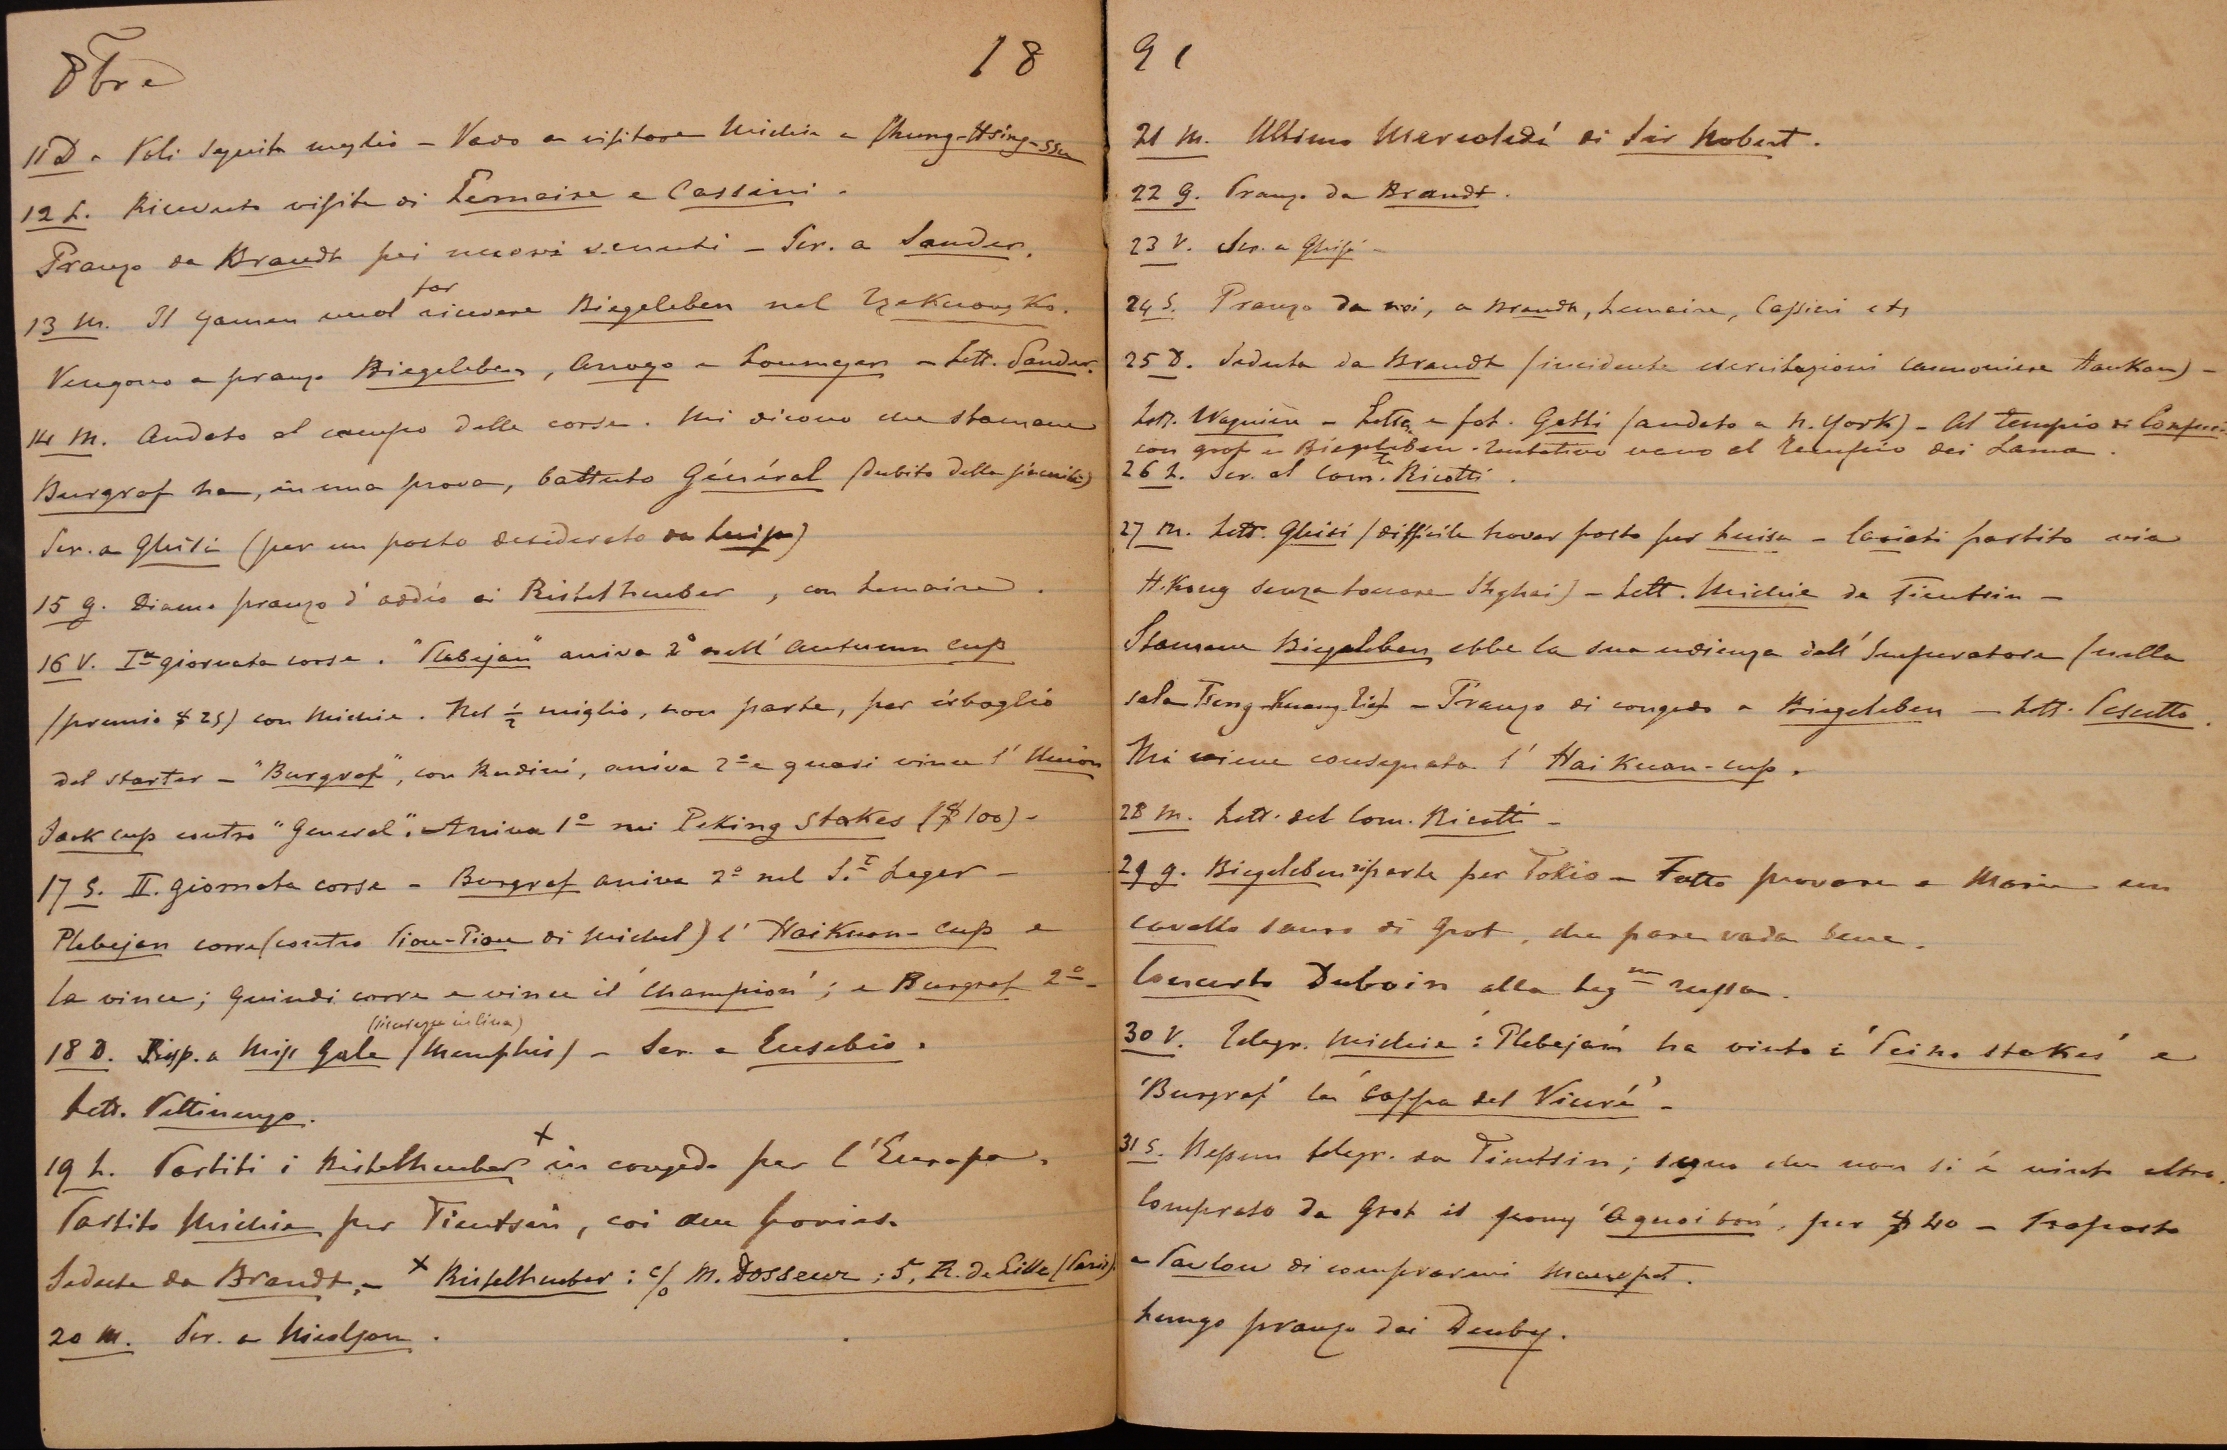 8bre 18
11 D. Poli seguita meglio – Vado a visitare Michie a Chung-Hsing-ssu
12 L. Ricevuto visite di Lemaire e Cassini.
Pranzo da Brandt pei nuovi venuti – Scr. a Sander.
13 M. Il Yamen vuol far ricevere Biegeleben nel Tzekuangko.
Vengono a pranzo Biegeleben, Arroyo e Loumeyer – Lett. Sander.
14 M. Andato al campo delle corse. Mi dicono che stamane
Burgraf ha, in una prova, battuto Général (dubito della )
Scr. a Ghisi (per un posto desiderato da Luisa)
15 G. Diamo pranzo d'addio ai Ristelhueber, con Lemaire.
16 V. Iª giornata corse. "Plebejan" arriva 2º nell' Autumn Cup
(premio $ 25) con Michie. Nel ½ miglio, non parte, per isbaglio
del starter – "Burgraf", con Rudini, arriva 2º e quasi vince l' Union
Jack cup contro "General". Arriva 1º nei Peking Stakes ($ 100) –
17 S. II. giornata corse – Burgraf arriva 2º nel S.t Leger –
Plebejan corre (contro Piou-Piou di Michel) l' HaiKuan-Cup e
la vince; quindi corre e vince il 'Champion'; e Burgraf 2º –
18 D. Risp. a Miss Gale (Memphis) – Scr. a Eusebio.
Lett. Pettinengo.
19 L. Partiti i Ristelhueber x in congedo per l'Europa.
Partito Michie per Tientsin, coi due ponies.
Seduta da Brandt. – x Ristelhueber: c/o M. Dosseur; 5, R. de Lille (Paris).
20 M. Scr. a Nicolson.
91
21 M. Ultimo Mercoledí di Sir Robert.
22 G. Pranzo da Brandt.
23 V. Scr. a Ghisi –
24 S. Pranzo da noi, a Brandt, Lemaire, Cassini etc
25 D. Seduta da Brandt (incidente esercitazioni cannoniere Hankow) –
Lett. Wagnière – Letta e fot. Gatti (andato a N. York) – Al Tempio di
con e Biegeleben – tentativo vano al Tempio dei Lama.
26 L. Scr. al Com.te Ricotti.
27 M. Lett. Ghisi (difficile trovar posto per Luisa – partito via
H.Kong senza toccare Shghai) – Lett. Michie da Tientsin –
Stamane Biegeleben ebbe la sua udienza dall' Imperatore (nella
sala – Pranzo di congedo a Biegeleben – Lett. Pescetto.
Mi viene consegnata l' HaiKuan-cup.
28 M. Lett. del Com. Ricotti –
29 G. Biegeleben riparte per Tokio – Fatto provare a Maria un
cavallo sauro di Grot, che pare vada bene.
Concerto Duboin alla leg.ne russa.
30 V. Telegr. Michie: 'Plebejan' ha vinto i 'Peiho stakes' e
'Burgraf' la 'Coppa del Viceré' –
31 S. Nessun telegr. da Tientsin; segno che non si è vinto altro.
Comprato da Grot il pony per $ 40 – Proposto
a Pavlow di comprarmi
Lungo pranzo dai Denby.